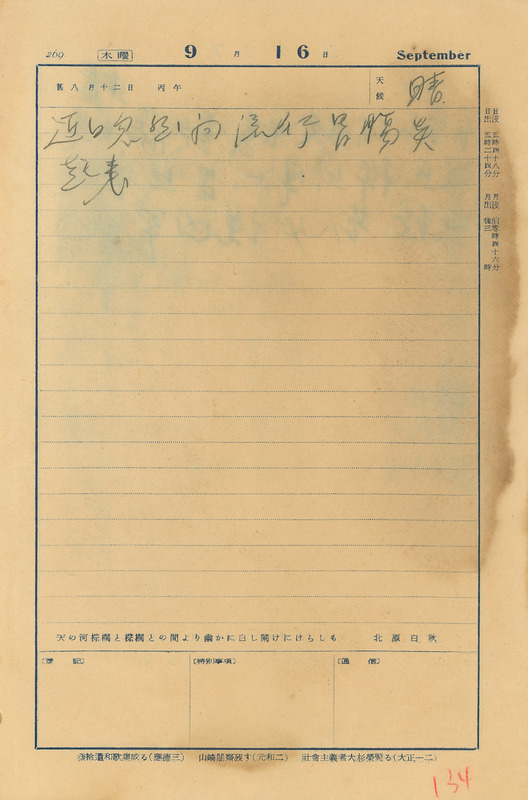 260 木曜 9月16日 September
舊八月十二日 丙午 天候 晴
近日忽然向流行胃腸炎
起来
日出 五時二十四分 日沒 五時四十八分
月出 後三時 月沒 前零時四十六分
天の河棕櫚と棕櫚との間より幽かに白し闌けにけらしも 北原白秋
〔豫記〕 〔特別事項〕 〔通信〕
後拾遺和歌集成る(應德三) 山崎闇齋歿す(天和二) 社會主義者大杉榮殺る(大正一二)
134